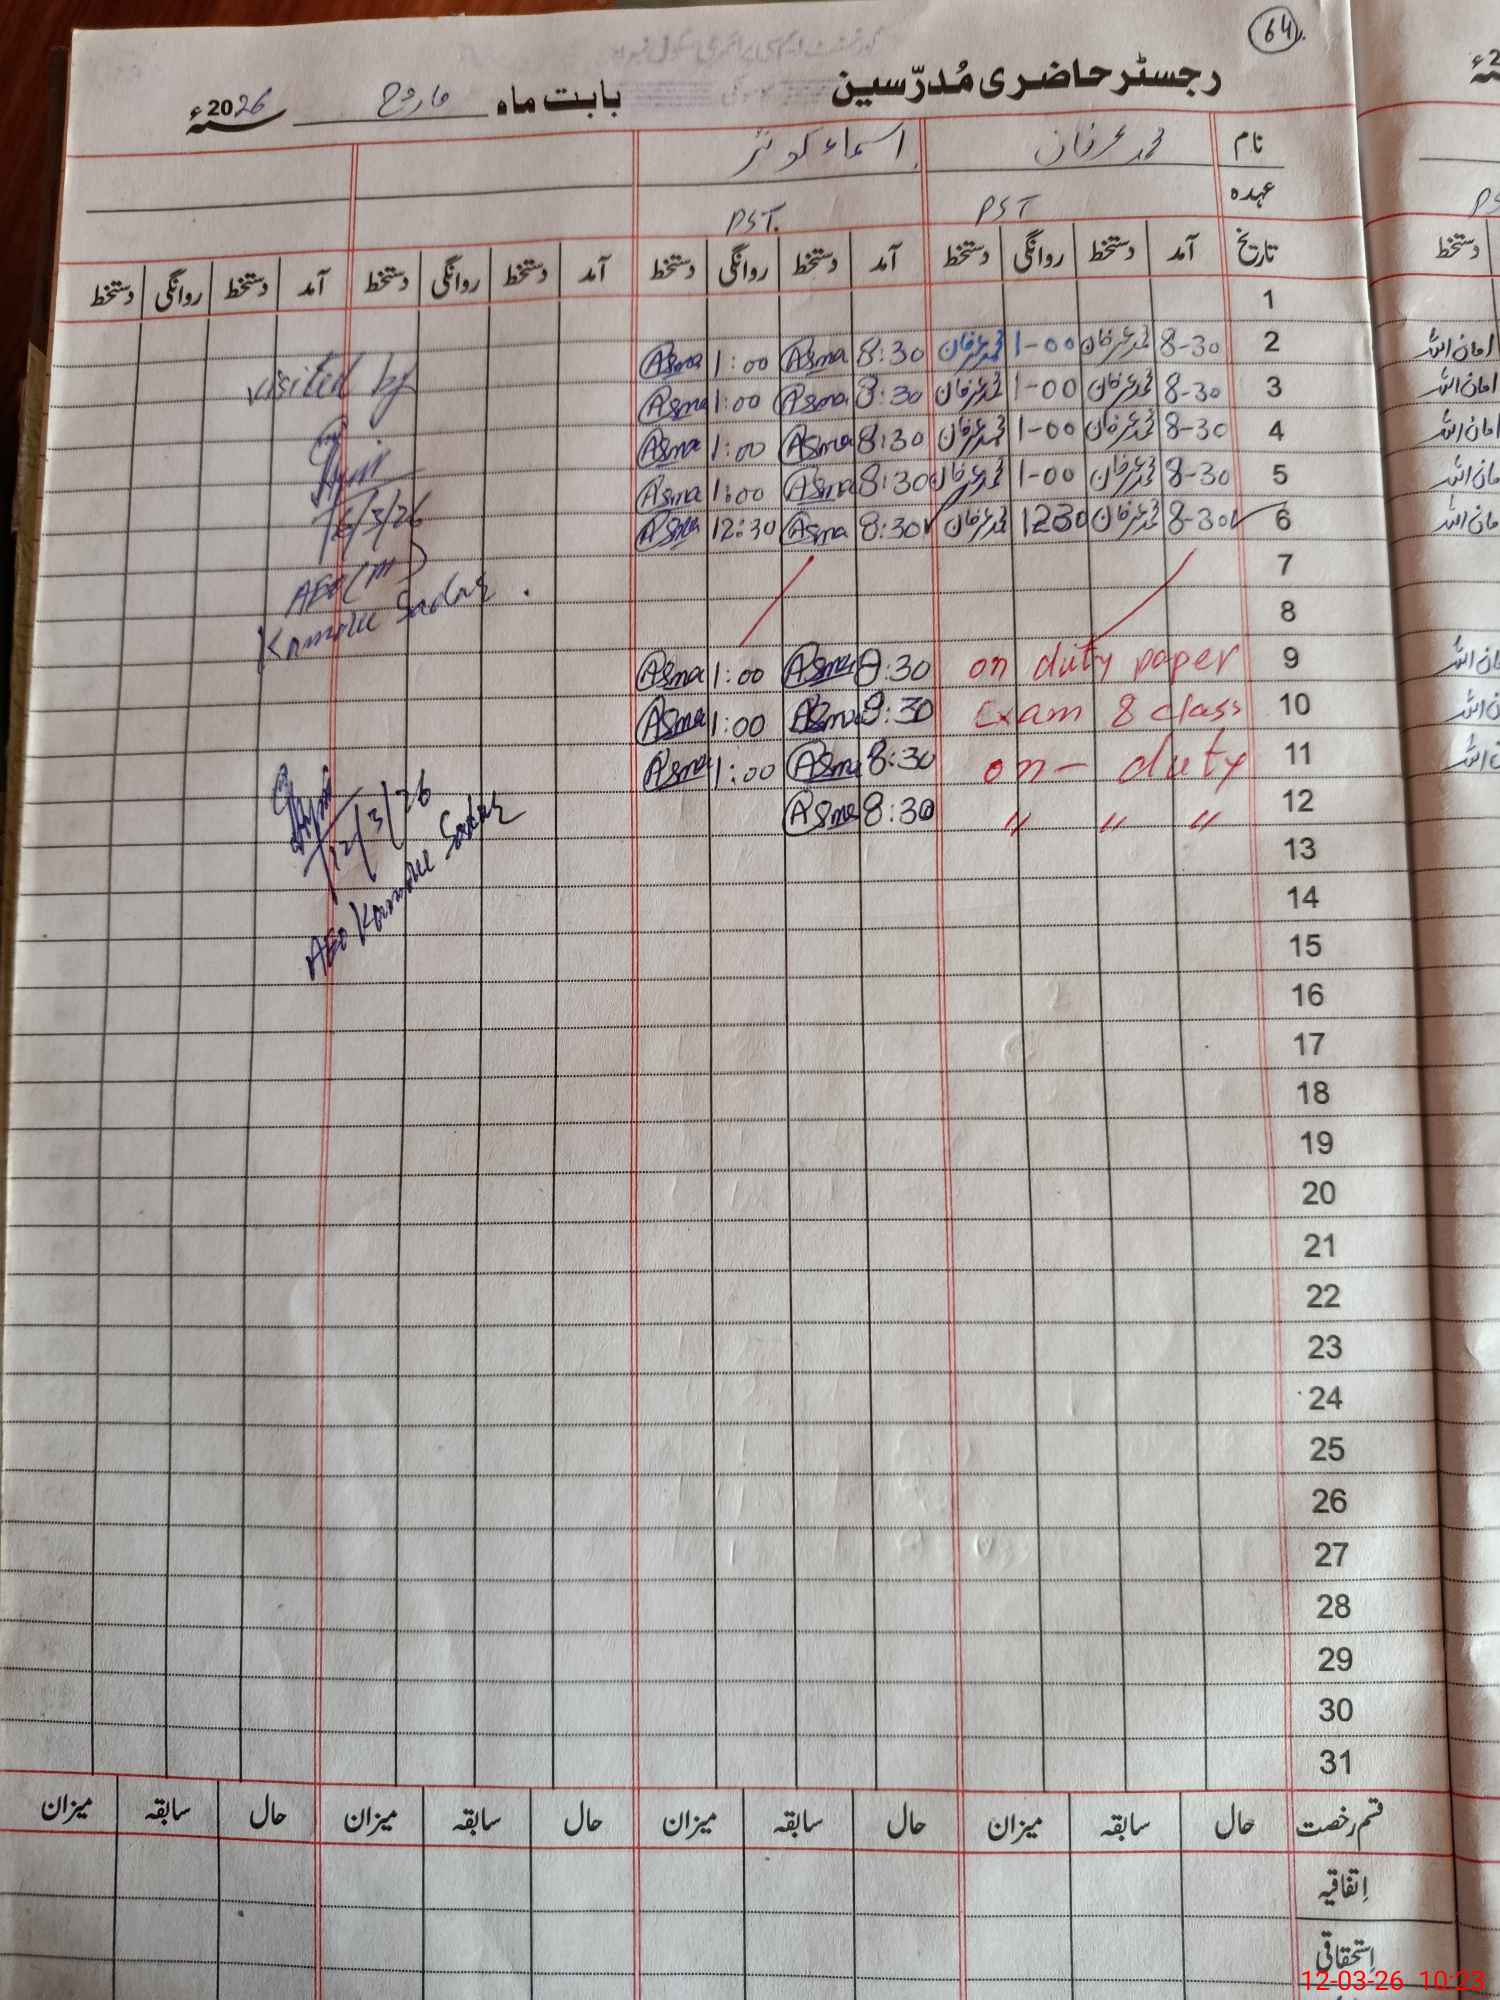 64
رجسٹر حاضری مُدرّسین بابت ماہ مارچ 2026ء
نام محمد عرفان اسماء کوثر
عہدہ PST PST.
تاریخ آمد دستخط روانگی دستخط آمد دستخط روانگی دستخط آمد دستخط روانگی دستخط آمد دستخط روانگی دستخط
1
2 8-30 محمد عرفان 1-00 محمد عرفان 8:30 Asma 1:00 Asma
3 8-30 محمد عرفان 1-00 محمد عرفان 8:30 Asma 1:00 Asma
4 8-30 محمد عرفان 1-00 محمد عرفان 8:30 Asma 1:00 Asma
5 8-30 محمد عرفان 1-00 محمد عرفان 8:30 Asma 1:00 Asma
6 8-30 محمد عرفان 1230 محمد عرفان 8:30 Asma 12:30 Asma
7
8
9 on duty paper 8:30 Asma 1:00 Asma
10 Exam 8 class 8:30 Asma 1:00 Asma
11 on - duty 8:30 Asma 1:00 Asma
12 " " " 8:30 Asma
13
14
15
16
17
18
19
20
21
22
23
24
25
26
27
28
29
30
31
visited by
6/3/26
AEO (M)
Kamoke Sadar.
12/3/26
AEO Kamoke Sadar
قسم رخصت حال سابقہ میزان حال سابقہ میزان حال سابقہ میزان حال سابقہ میزان
اِتفاقیہ
اِستحقاقی
دستخط
امان اللہ
امان اللہ
امان اللہ
امان اللہ
امان اللہ
امان اللہ
امان اللہ
امان اللہ
12-03-26 10:23